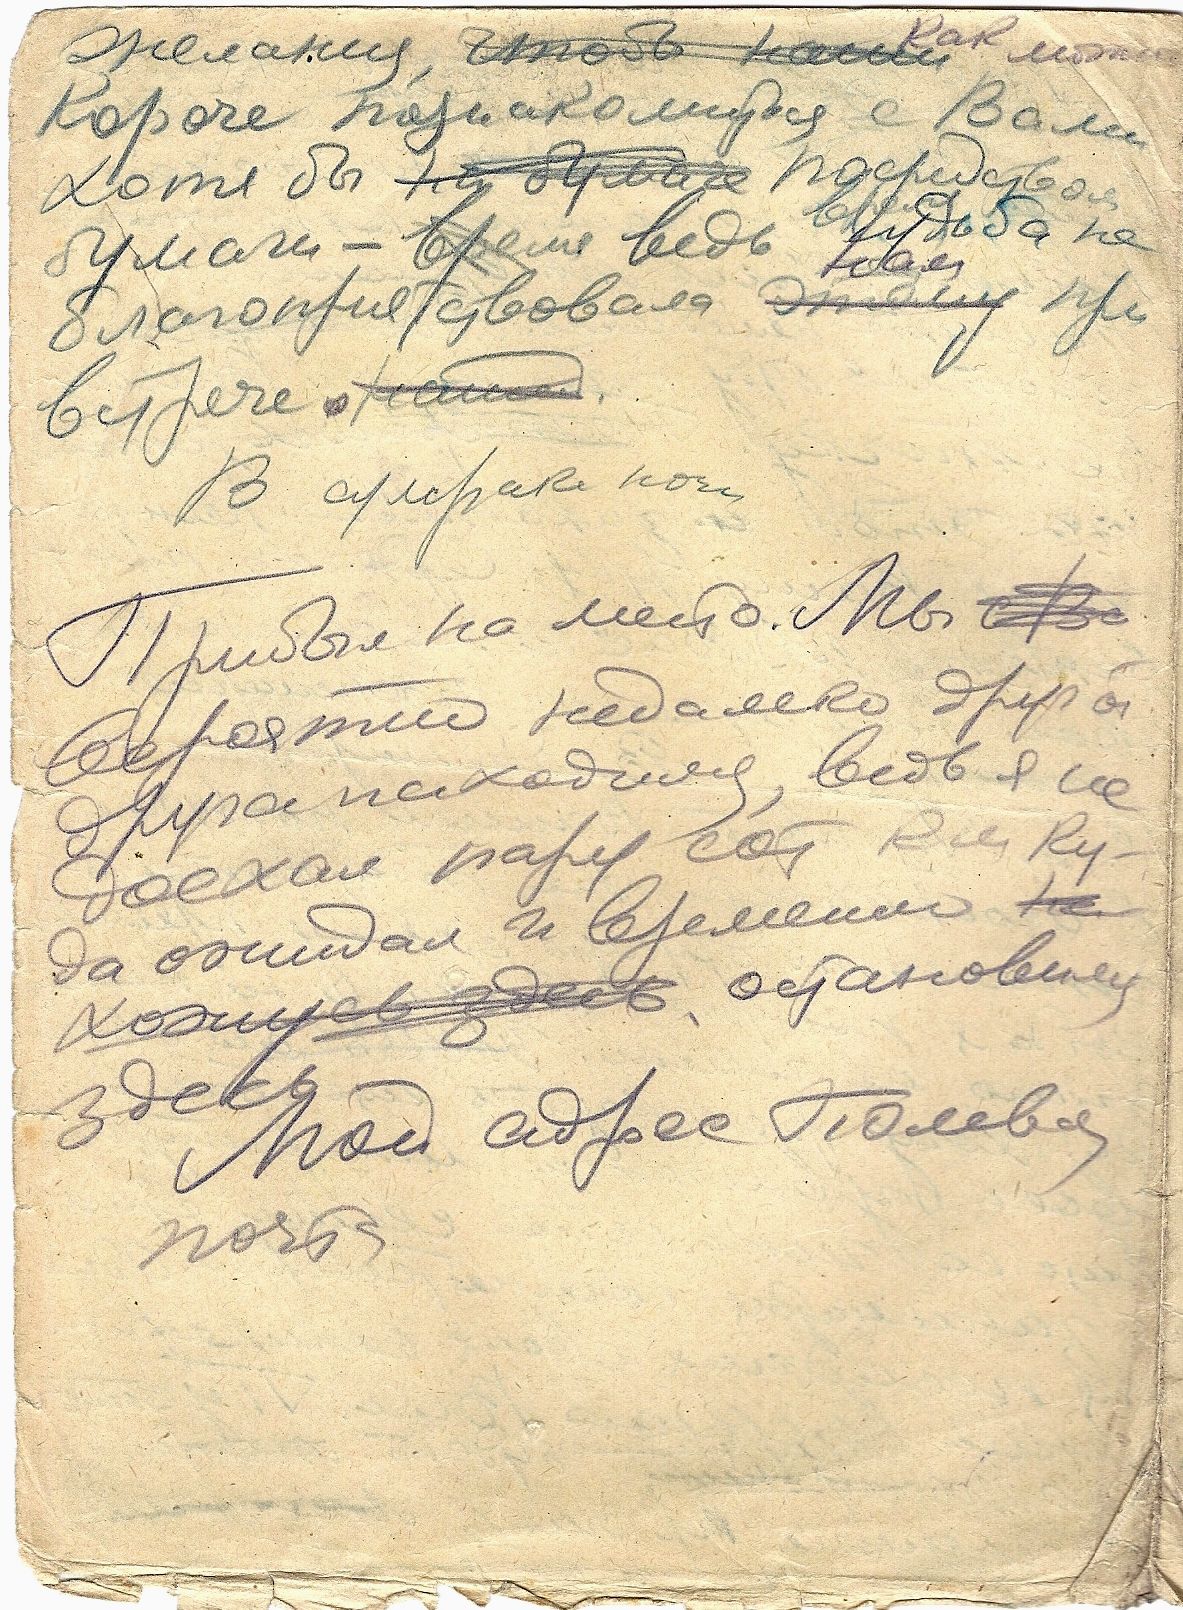 желания, чтобы наши как можно
короче познакомиться с Вами
хотя бы на бумаге посредством
бумаги – время ведь судьба не
благоприятствовала этому нам при
встрече нашей.
В мраке ночи
Прибыл на место. Мы с Ва
вероятно недалеко друг от
друга находимся, ведь я не
доехал пару сот клм ку-
да ожидал и временно на
хожусь здесь, остановился
здесь
Мой адрес Полевая
почта